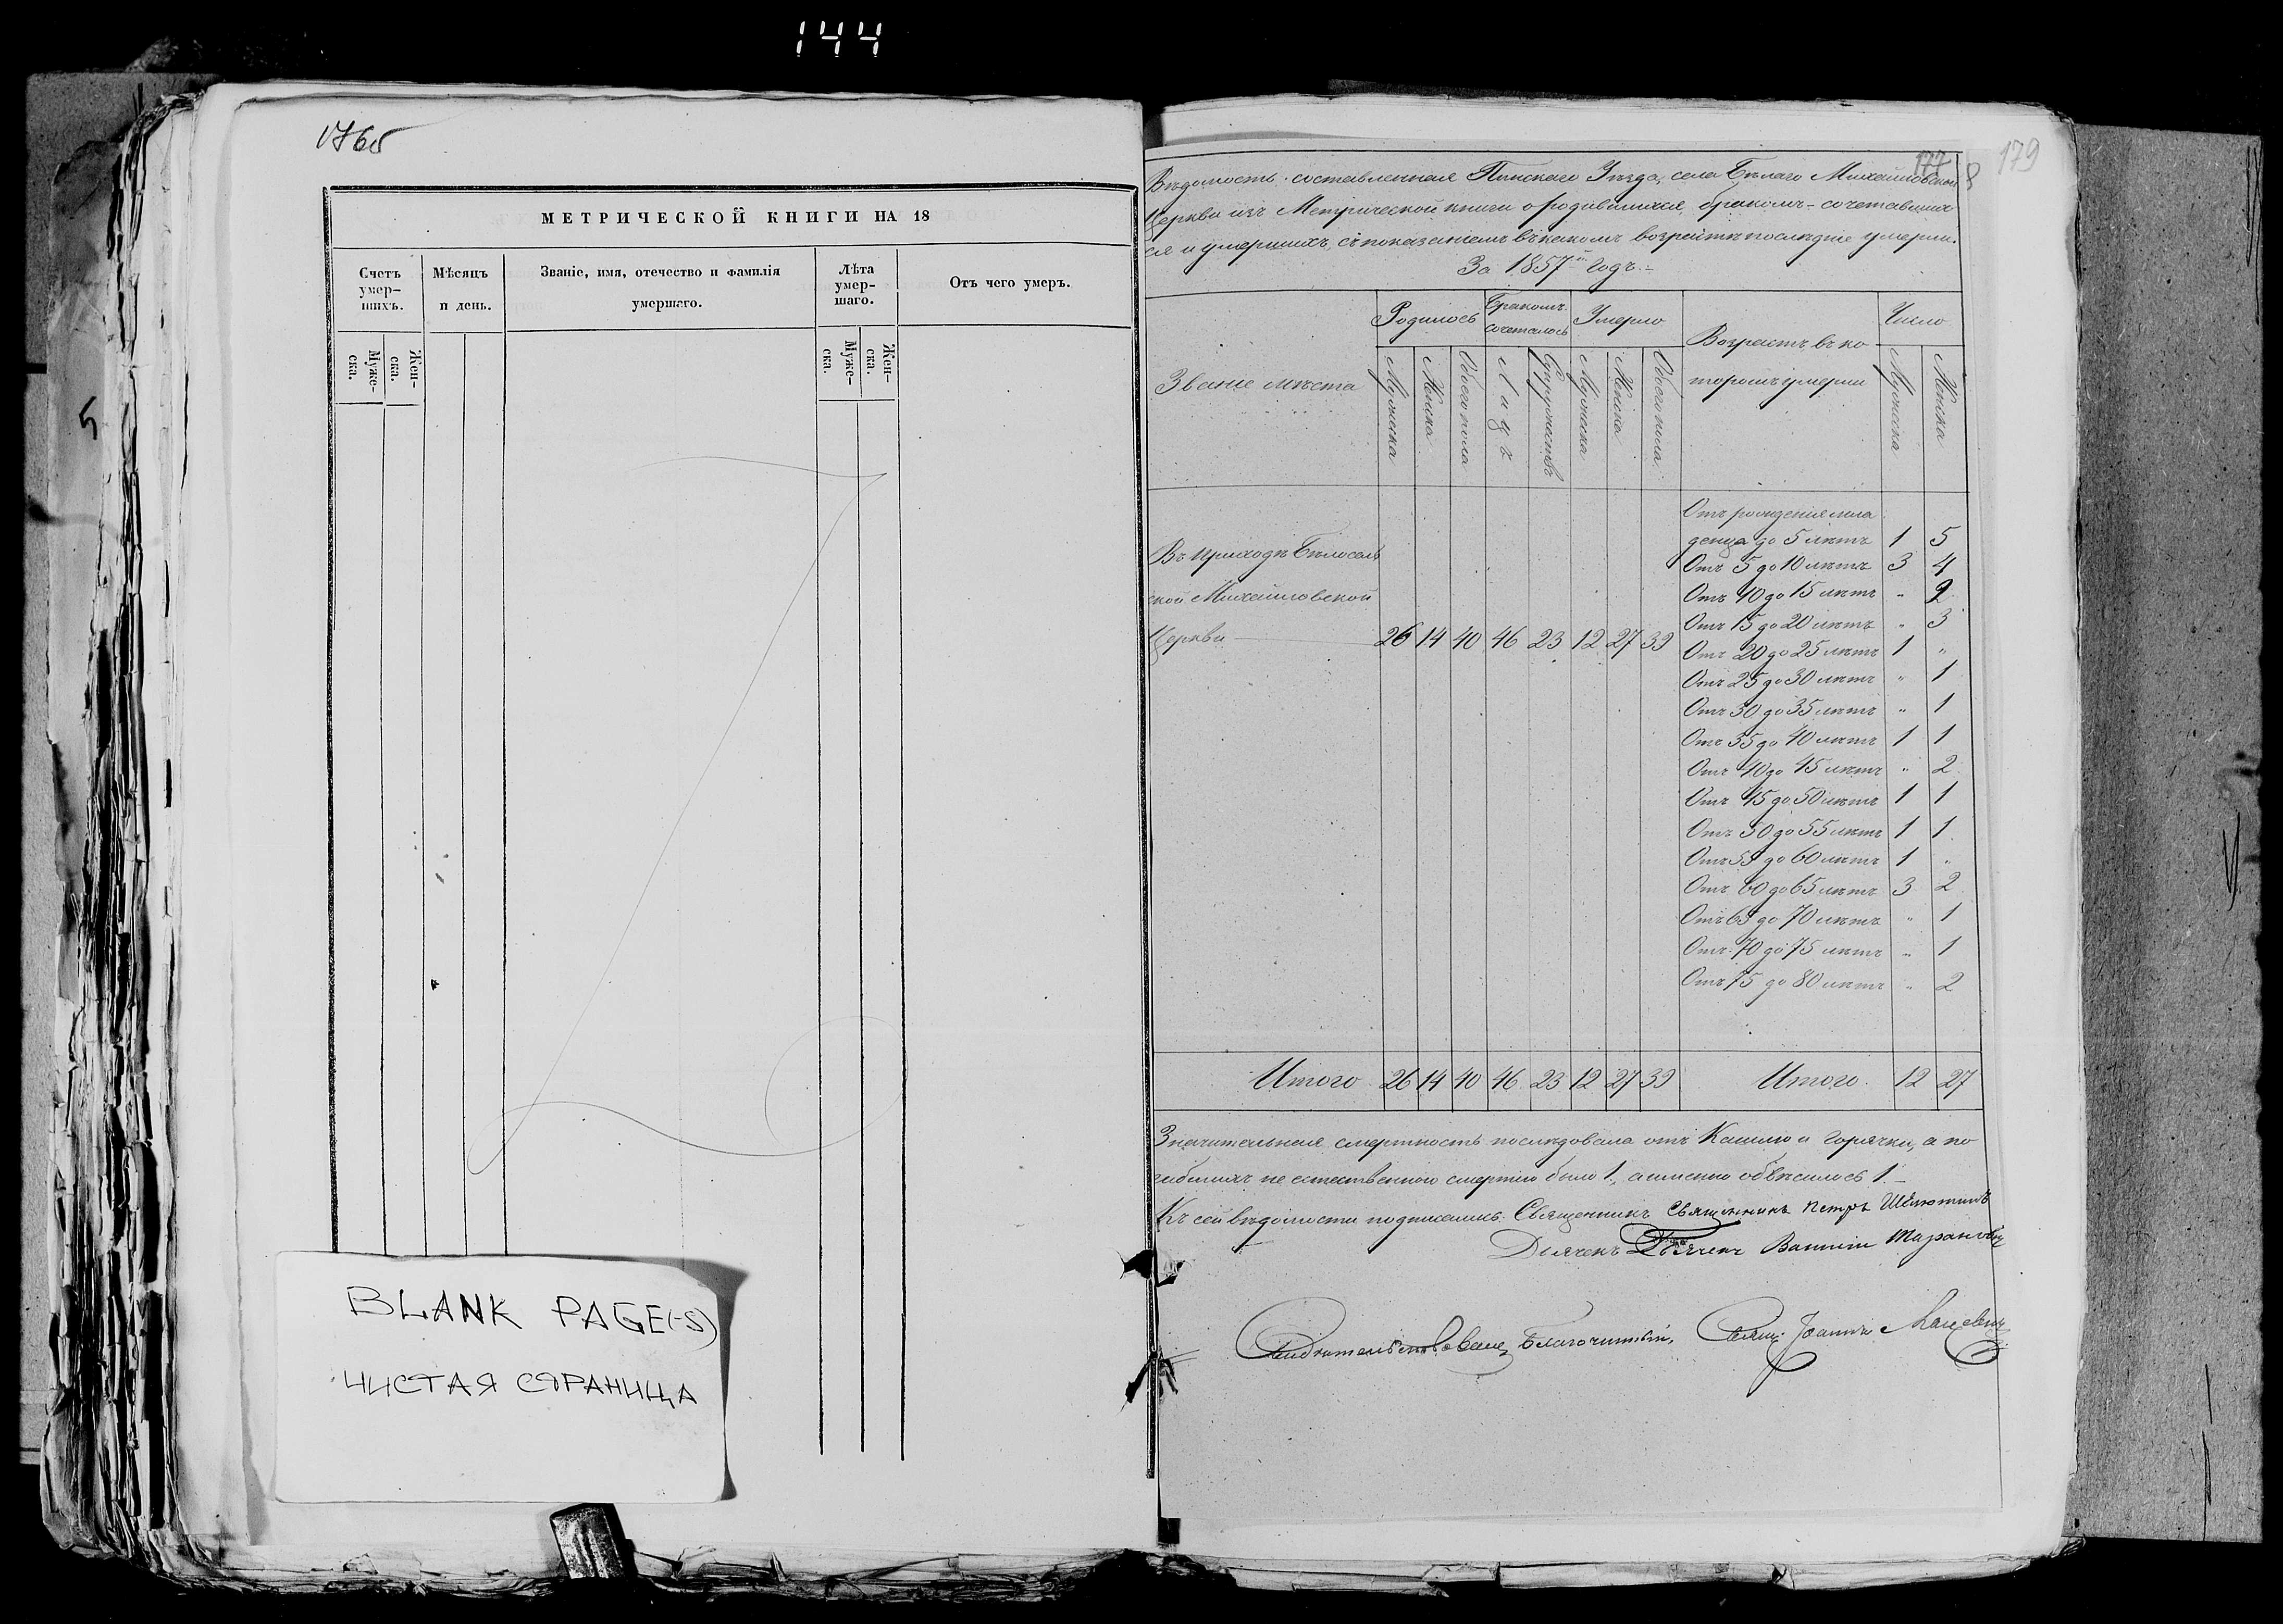 144
176об
МЕТРИЧЕСКОЙ КНИГИ НА 18
Счетъ умер-шихъ.
Мѣсяцъ и день.
Званіе, имя, отечество и фамилія умершаго.
Лѣта умер-шаго.
Отъ чего умеръ.
Муже-ска.
Жен-ска.
Муже-ска.
Жен-ска.
5
BLANK PAGE(-S)
ЧИСТАЯ СТРАНИЦА
177
179
Вѣдомость составленная Пинскаго Уѣзда, села Бѣлаго Михайловской
Церкви изъ Метрической книги о родившихся, бракомъ-сочетавших
ся и умершихъ, съ показаніемъ въ какомъ возрастѣ послѣдніе умерли.
За 1857й Годъ.
Званіе мѣста
Родилось
Бракомъ сочеталось
Умерло
Возрастъ въ ко
торомъ умерли
Число
Мужеска
Женска
Обоего пола
Лицъ
Супружествъ
Мужеска
Женска
Обоего пола
Мужеска
Женска
Въ приходѣ Бѣлосель
ской Михайловской
Церкви 26 14 40 46 23 12 27 39
Отъ рожденія мла
денца до 5 лѣтъ 1 5
Отъ 5 до 10 лѣтъ 3 4
Отъ 10 до 15 лѣтъ " 2
Отъ 15 до 20 лѣтъ " 3
Отъ 20 до 25 лѣтъ 1 "
Отъ 25 до 30 лѣтъ " 1
Отъ 30 до 35 лѣтъ " 1
Отъ 35 до 40 лѣтъ 1 1
Отъ 40 до 45 лѣтъ " 2
Отъ 45 до 50 лѣтъ 1 1
Отъ 50 до 55 лѣтъ 1 1
Отъ 55 до 60 лѣтъ 1 "
Отъ 60 до 65 лѣтъ 3 2
Отъ 65 до 70 лѣтъ " 1
Отъ 70 до 75 лѣтъ " 1
Отъ 75 до 80 лѣтъ " 2
Итого 26 14 40 46 23 12 27 39 Итого. 12 27
Значительная смертность послѣдовала отъ Кашлю и Горячки, а по
гибшихъ не естественною смертію было 1, а именно обвѣсилось 1.
Къ сей вѣдомости подписались: Священникъ Священникъ Петръ
Дьячекъ Дьячекъ
Свидѣтельствовалъ Благочинный, Свящ. Іоаннъ